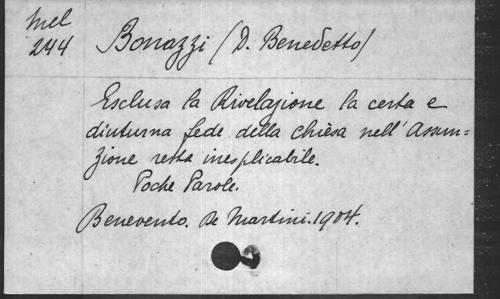 Mel
244
Bonazzi (D. Benedetto)
Esclusa la Rivelazione la certa e
diuturna fede della chiesa nell'Assun=
zione resta inesplicabile.
Poche Parole.
Benevento. De Martini. 1904.